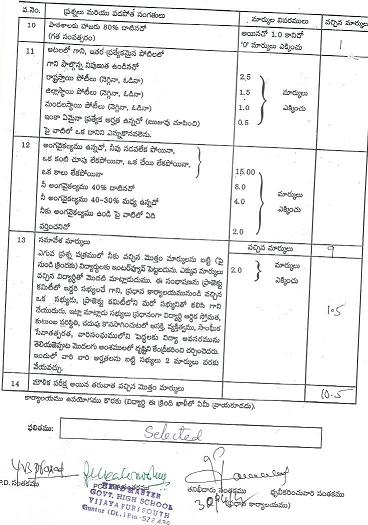 వ.నెం. ప్రశ్నలు మరియు పరిశోధన సంగతులు మార్కుల వివరములు వచ్చిన మార్కులు
10 పాఠశాలకు హాజరు 80% దాటినచో అయినచో 1.0 కానిచో 1
(గత సంవత్సరం) '0' మార్కులు ఎక్కించు
11 ఆటలలో గాని, ఇతర ప్రత్యేకమైన పోటిలలో
గాని పాల్గొన్న నిపుణుత ఉండినచో
రాష్ట్రస్థాయి పోటీలు (నెగ్గినా, ఓడినా) 2.5
జిల్లాస్థాయి పోటీలు (నెగ్గినా, ఓడినా) 1.5 మార్కులు
మండలస్థాయి పోటీలు (నెగ్గినా, ఓడినా) 1.0 ఎక్కించు
ఇంకా ఏమైనా ప్రత్యేక అర్హత ఉన్నచో (ఋజువు చూపించి) 0.5
పై వాటిలో ఒక దానిని ఎన్నుకొనవలెను.
12 అంగవైకల్యము ఉన్నచో, నీవు నడవలేక పోయినా,
ఒక కంటి చూపు లేకపోయినా, ఒక చేయి లేకపోయినా 15.00
ఒక కాలు లేకపోయినా మార్కులు
నీ అంగవైకల్యము 40% దాటినచో 8.0
నీ అంగవైకల్యము 40-30% మధ్య ఉన్నచో 4.0 ఎక్కించు
నీకు అంగవైకల్యము ఉండి పై వాటిలో ఏది
వర్తించనిచో 2.0
13 సమావేశ మార్కులు వచ్చిన మార్కులు 9
ఎగువ ప్రశ్న పత్రములో నీకు వచ్చిన మొత్తం మార్కులను బట్టి (పై
నుండి క్రిందకు) విద్యార్థులకు ఇంటర్వ్యూవ్ పెట్టబడును. ఎక్కువ మార్కులు 2.0 మార్కులు
వచ్చిన విద్యార్థితో మొదట మాట్లాడుదుము. ఈ సంభాషణను ప్రాజెక్టు ఎక్కించు
కమిటీలో ఇద్దరి సభ్యులచే గాని, ప్రధాన కార్యాలయమునుండి వచ్చిన
ఒక సభ్యుడు, ప్రాజెక్టు కమిటీలోని మరో సభ్యునితో కలిసి గాని 1.5
చేయుదురు. ఇట్లు మాట్లాడు సభ్యులు ప్రధానంగా విద్యార్థి ఆర్థిక స్తోమత,
కుటుంబ పరిస్థితి, చదువు కొనసాగించుటలో ఆసక్తి, వ్యక్తిత్వము, సాంఘీక
సేవాతత్పరత, వారిసంఘములోని పెద్దలకు విద్యా అవసరమును
తెలియజెప్పుట మొదలగు అంశములతో దృష్టిని కేంద్రీకరించి చర్చించెదరు.
ఇందులో వారి వారి అర్హతలను బట్టి సభ్యులు 2 మార్కులు వరకు
వేయవచ్చు.
14 మౌఖిక పరీక్ష అయిన తరువాత వచ్చిన మొత్తం మార్కులు 10.5
కార్యాలయము ఉపయోగము కొరకు (విద్యార్థి ఈ క్రింది ఖాళీలో ఏమీ వ్రాయకూడదు).
ఫలితము: Selected
P.D. సంతకము తనిఖీదారు సంతకము ధృవీకరించువారి సంతకము
(ప్రధాన కార్యాలయము)
HEAD MASTER
GOVT. HIGH SCHOOL
VIJAYA PURI SOUTH
Guntur (Dt.) Pin-522 439